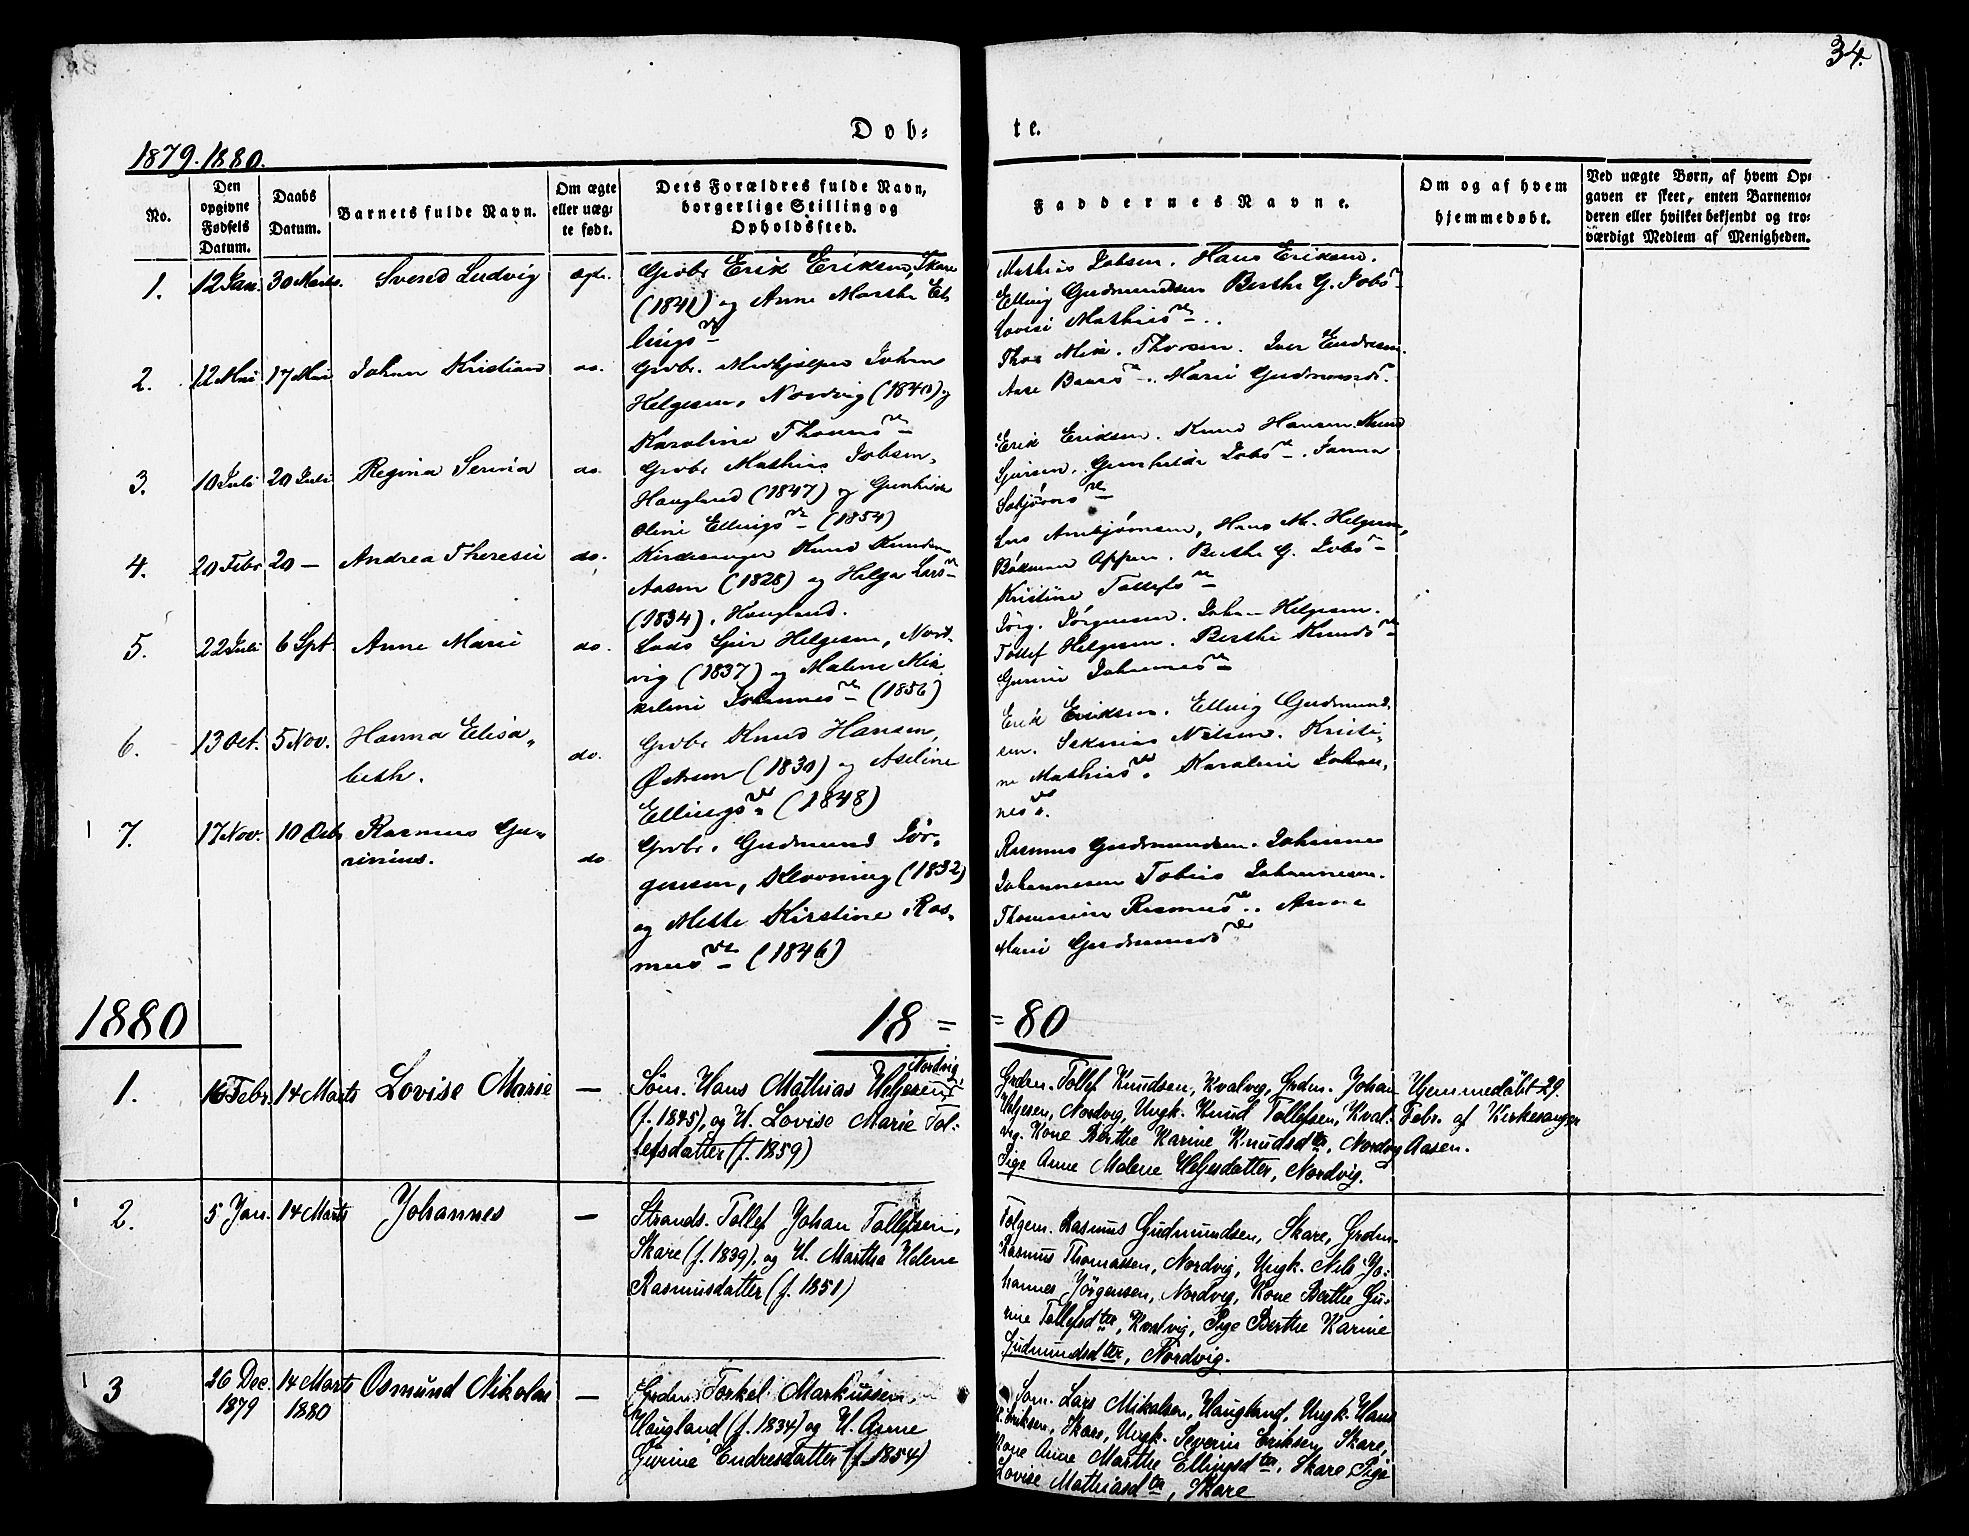 34.
Døb- te.
1879. 1880.
No.
Den opgivne Fødsels Datum.
Daabs Datum.
Barnets fulde Navn.
Om ægte eller uæg- te født.
Dets Forældres fulde Navn, borgerlige Stilling og Opholdssted.
Faddernes Navne.
Om og af hvem hjemmedøbt.
Ved uægte Børn, af hvem Op- gaven er skeet, enten Barnemo- deren eller hvilket bekjendt og tro- værdigt Medlem af Menigheden.
1. 12 Jan. 30 Marts. Svend Ludvig ægte.
Grbr Erik Eriksen, Skare
(1841) og Anne Marthe El-
lings
Mathias Jobsen. Hans Eriksen.
Elling Gudmundsen Berthe G. Jobs
Lovise Mathias
2. 12 Mai 17 Mai Johan Kristian do.
Grbr. Medhjælper Johan
Helgesen, Nordvig (1840) og
Karoline Thomas
Thore Mik. Thorsen. Iver Endresen.
Marie Gudmunds
3. 10 Juli 20 Juli Regina Serina do.
Grbr Mathias Jobsen,
Haugland (1847) og Gunhilde
Oline Ellings (1854)
Erik Eriksen. Knud Hansen. Knud
Gunhilde Jobs
4. 20 Febr 20 — Andrea Theresie do.
Kirkesanger Knud Knudsen
Aasen (1828) og Helga Lars
(1834), Haugland.
Hans M. Helgesen,
Berthe G. Jobs
Kristine Tollefs
5. 22 Juli 6 Spt. Anne Marie do.
Lods Helgesen, Nord-
vig (1837) og Malene Mik-
keline Johannes (1856)
Jørg. Jørgensen. Johan Helgesen.
Tollef Helgesen. Berthe Knuds
Gurine Johannes
6. 13 Oct. 5 Nov. Hanna Elisa-
beth. do.
Grbr Knud Hansen,
(1830) og Aseline
Ellings (1848)
Erik Eriksen. Elling Gudmund-
sen. Sakarias Nilsen. Kristi-
ne Mathias. Karoline Johan-
nes.
7. 17 Nov. 10 Decb Rasmus Gu-
rinius. do
Grbr. Gudmund Jør-
gensen, Klovning (1832)
og Mette Kirstine Ras-
mus (1846)
Rasmus Gudmundsen. Johannes
Johannesen Tobias Johannesen.
Thomasine Rasmus. Anne
Marie Gudmunds
1880 18 = = 80
1. 16 Febr. 14 Marts Lovise Marie —
Nordvig
Søm. Hans Mathias Helgesen
(f. 1845), og H. Lovise Marie Tol-
lefsdatter (f. 1859)
Grdm. Tollef Knudsen, Kvalvig, Grdm. Johan
Helgesen, Nordvig, Ungk. Knud Tollefsen, Kval-
vig. Kone Berthe Karine Knudsdtr, Nordvig
Pige Anne Malene Helgesdatter, Nordvig.
Hjemmedøbt 29.
Febr. af Kirkesanger
Aasen.
2. 5 Jan. 14 Marts Johannes —
Strands. Tollef Johan Tollefsen,
Skare (f. 1839), og H. Martha Helene
Rasmusdatter (f. 1851)
Følgem. Rasmus Gudmundsen, Skare, Grdm.
Rasmus Thomassen, Nordvig, Ungk. Nils Jo-
hannes Jörgensen, Nordvig, Kone Berthe Gu-
rine Tollefsdtr, Kvalvig, Pige Berthe Karine
Gudmundsdtr, Nordvig.
3 26 Dec. 1879 14 Marts 1880 Osmund Nikolai —
Grdm. Torkel Markussen,
Haugland (f. 1834) og H. Anne
Gurine Endresdatter (f. 1854)
Søm. Lars Mikalsen, Haugland, Ungk. Hans
Eriksen, Skare, Ungk. Severin Eriksen, Skare,
Kone Anne Marthe Ellingsdtr, Skare, Pige
Lovise Mathiasdtr, Skare